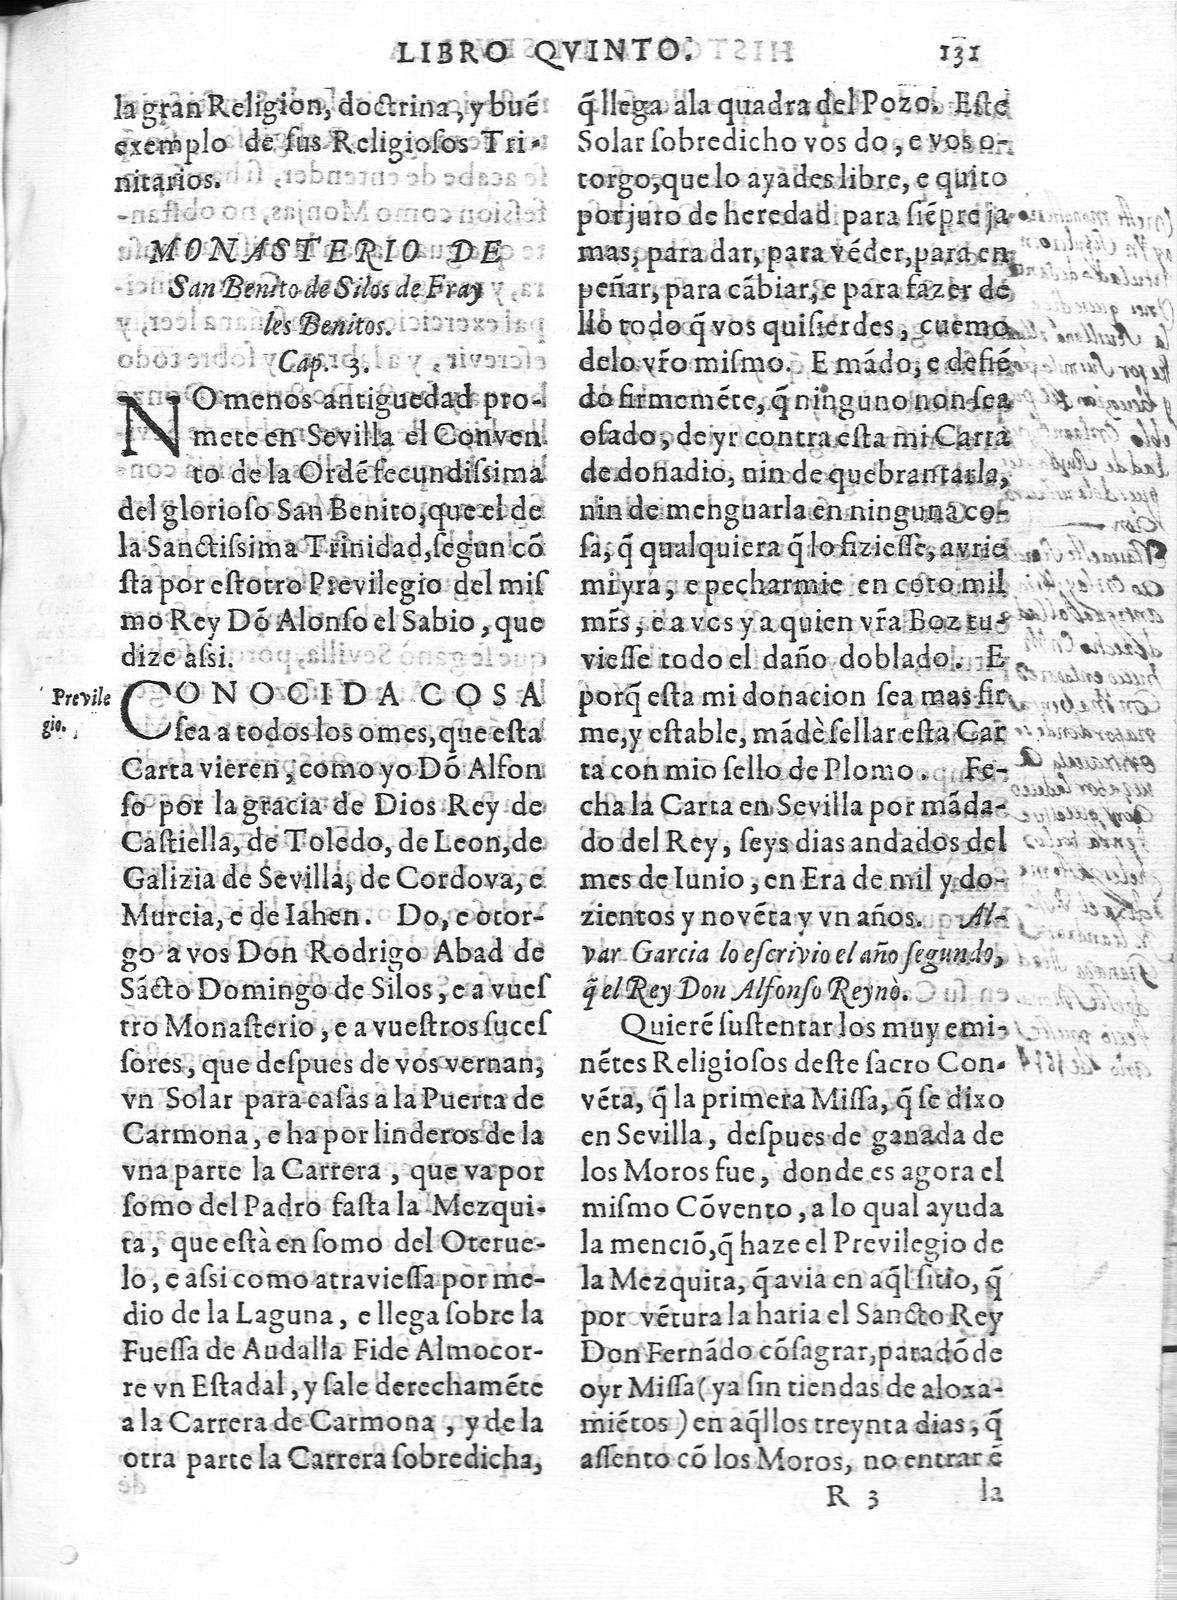 LIBRO QVINTO.
131
la gran Religion, doctrina, y buẽ
exemplo de ſus Religioſos Tri-
nitarios.
MONASTERIO DE
San Benito de Silos de Fray
les Benitos.
Cap. 3.
NO menos antiguedad pro-
mete en Sevilla el Conven
to de la Ordẽ fecundiſsima
del glorioſo San Benito, que el de
la Sanctiſsima Trinidad, ſegun cõ
ſta por eſtotro Previlegio del miſ
mo Rey Dõ Alonſo el Sabio, que
dize aſsi.
Previle
gio.
CONOCIDA COSA
ſea a todos los omes, que eſta
Carta vieren, como yo Dõ Alfon
ſo por la gracia de Dios Rey de
Caſtiella, de Toledo, de Leon, de
Galizia de Sevilla, de Cordova, e
Murcia, e de Iahen. Do, e otor-
go a vos Don Rodrigo Abad de
Sãcto Domingo de Silos, e a vueſ
tro Monaſterio, e a vueſtros ſuceſ
ſores, que deſpues de vos vernan,
vn Solar para caſas a la Puerta de
Carmona, e ha por linderos de la
vna parte la Carrera, que va por
ſomo del Padro faſta la Mezqui-
ta, que eſtà en ſomo del Oterue-
lo, e aſsi como atravieſſa por me-
dio de la Laguna, e llega ſobre la
Fueſſa de Audalla Fide Almocor-
re vn Eſtadal, y ſale derechamẽte
a la Carrera de Carmona, y de la
otra parte la Carrera ſobredicha,
q̃ llega ala quadra del Pozo. Eſte
Solar ſobredicho vos do, e vos o-
torgo, que lo ayades libre, e quito
por juro de heredad para ſiẽpre ja
mas, para dar, para vẽder, para en
peñar, para cãbiar, e para fazer de
llo todo q̃ vos quiſierdes, cuemo
delo vr̃o miſmo. E mãdo, e defiẽ
do firmemẽte, q̃ ninguno non ſea
oſado, de yr contra eſta mi Carta
de donadio, nin de quebrantarla,
nin de menguarla en ninguna co-
ſa, q̃ qualquiera q̃ lo fizieſſe, avrie
mi yra, e pecharmie en coto mil
mr̃s, e a vos y a quien vr̃a Boz tu-
vieſſe todo el daño doblado. E
porq̃ eſta mi donacion ſea mas fir
me, y eſtable, mãdè ſellar eſta Car
ta con mio ſello de Plomo. Fe-
cha la Carta en Sevilla por mãda-
do del Rey, ſeys dias andados del
mes de Iunio, en Era de mil y do-
zientos y novẽta y vn años. Al-
var Garcia lo eſcrivio el año ſegundo,
q̃ el Rey Don Alfonſo Reynò.
Quierẽ ſuſtentar los muy emi-
nẽtes Religioſos deſte ſacro Con-
vẽta, q̃ la primera Miſſa, q̃ ſe dixo
en Sevilla, deſpues de ganada de
los Moros fue, donde es agora el
miſmo Cõvento, a lo qual ayuda
la menciõ, q̃ haze el Previlegio de
la Mezquita, q̃ avia en aq̃l ſitio, q̃
por vẽtura la haria el Sancto Rey
Don Fernãdo cõſagrar, para dõde
oyr Miſſa (ya ſin tiendas de aloxa-
miẽtos) en aq̃llos treynta dias, q̃
aſſento cõ los Moros, no entrar ẽ
R 3
la